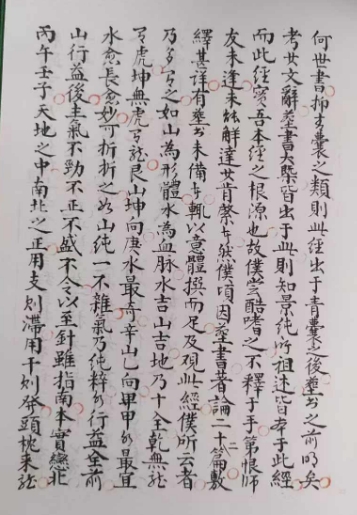 何世書抑才囊之類則此經出于青囊之後葬書之前明矣
考其文辭葬書大槩皆出于此則知景純所祖述皆本于此經
而此經實吾本經之根源也故僕嘗酷嗜之不釋于手第恨師
友未逢未能解達其肯綮与然僕頃因葬書著論二十篇敷
繹甚詳有葬書未備与輒以意體撰而足及观此經僕所云者
乃多与之如山為形體水為血脉水吉山吉地乃十全乾無龍
艮虎坤無虎艮龍艮山坤向庚水最奇辛山乙向畢甲水最宜
水愈長愈妙可折折之如山純一不雜氣乃純粹水行益全前
山行益後主氣不勁不正不盛不令以至針雖指南本實戀北
丙午壬子天地之中南北之正用支則滯用干則發頭枕来龍